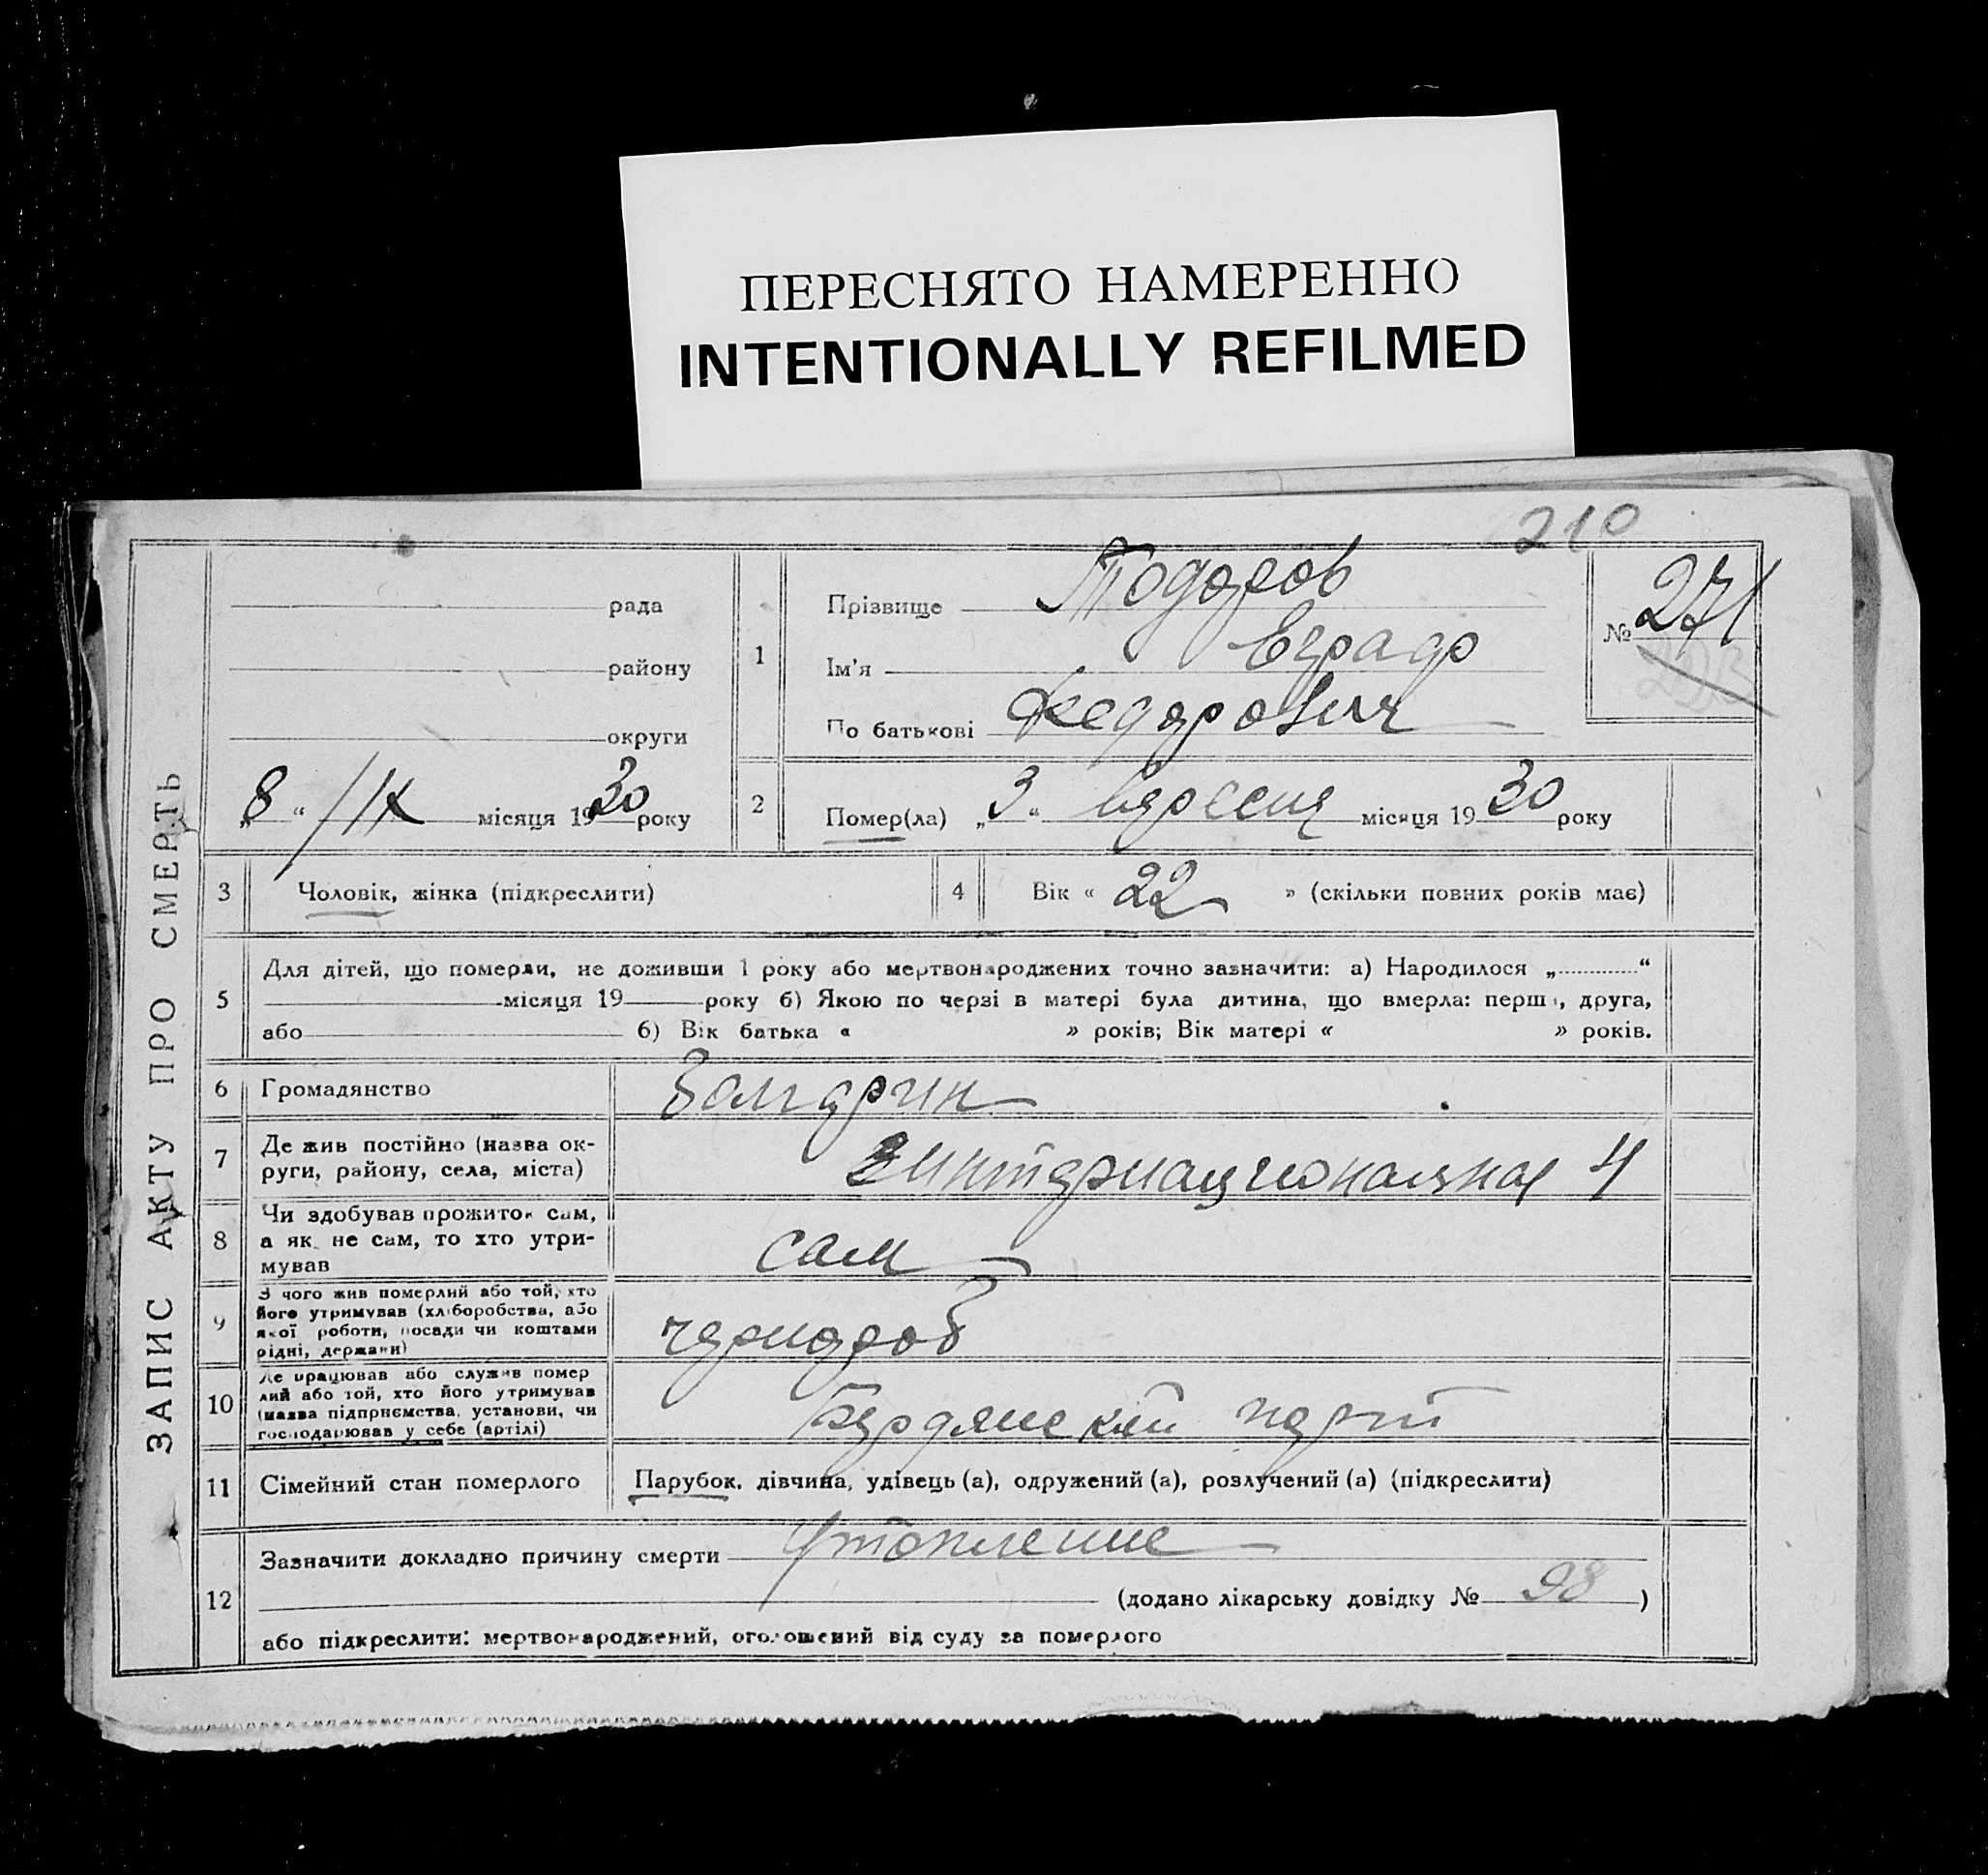 ПЕРЕСНЯТО НАМЕРЕННО
INTENTIONALLY REFILMED
210
ЗАПИС АКТУ ПРО СМЕРТЬ
рада
району
округи
„8“ /IX місяця 1930 року
1
Прізвище Тодоров
Ім'я
По батькові Федорович
№ 271
2
Помер(ла) „3“ вересня місяця 1930 року
3
Чоловік, жінка (підкреслити)
4
Вік « 22 » (скільки повних років має)
5
Для дітей, що померли, не доживши 1 року або мертвонароджених точно зазначити: а) Народилося „ “
місяця 19 року б) Якою по черзі в матері була дитина, що вмерла: перша, друга,
або б) Вік батька « » років; Вік матері « » років.
6
Громадянство
Болгарин
7
Де жив постійно (назва ок-
руги, району, села, міста)
Интернациональная 4
8
Чи здобував прожиток сам,
а як не сам, то хто утри-
мував
сам
9
З чого жив померлий або той, хто
його утримував (хліборобства, або
якої роботи, посади чи коштами
рідні, держави)
чернороб
10
Де працював або служив помер
лий або той, хто його утримував
(назва підприємства, установи, чи
господарював у себе (артілі)
Бердянский порт
11
Сімейний стан померлого
Парубок, дівчина, удівець (а), одружений (а), розлучений (а) (підкреслити)
12
Зазначити докладно причину смерти Утопление
(додано лікарську довідку № 98 )
або підкреслити: мертвонароджений, оголошений від суду за померлого